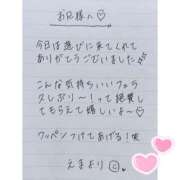 お兄様へ♡
今日は遊びに来てくれて
ありがとうございました
こんな気持ちいいフェラ
久しぶり〜!って絶賛し
てもらえて嬉しいよ〜♡
ワッペンつけてあげる!笑
えまより